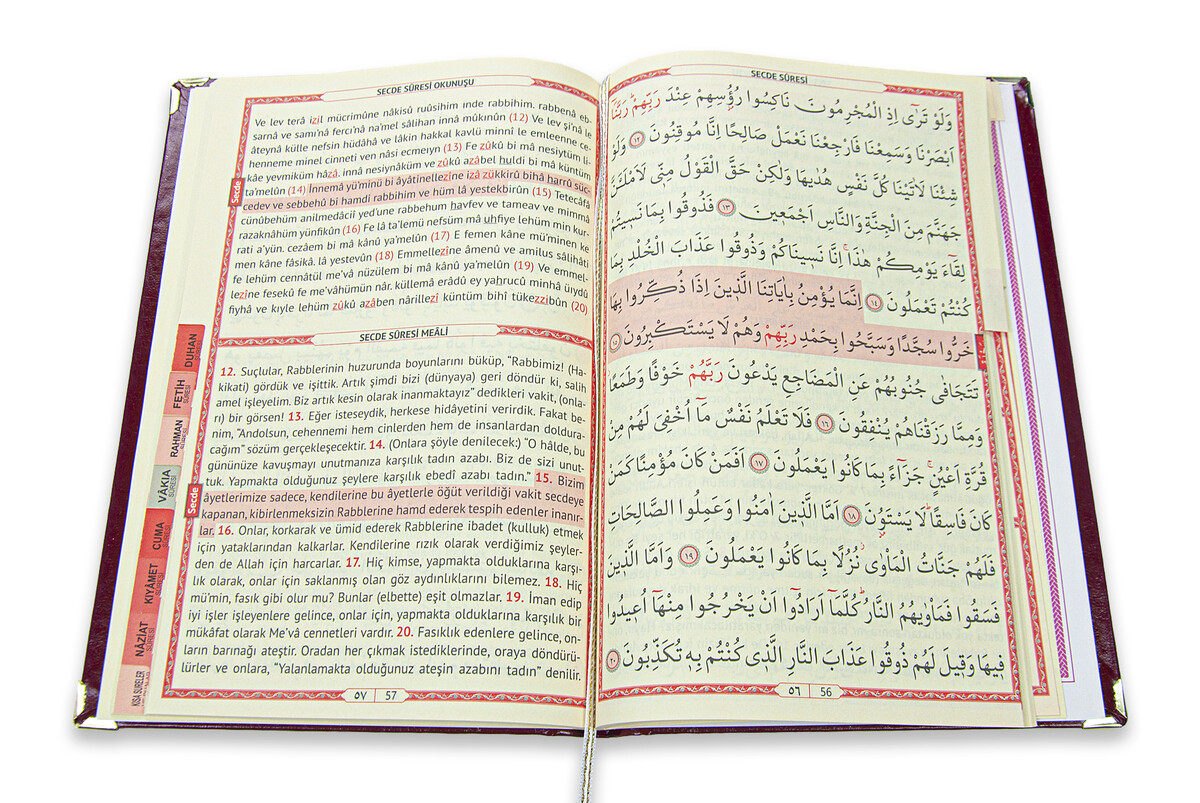 SECDE SÛRESİ OKUNUŞU
Ve lev terâ izil mücrimûne nâkisû ruûsihim ınde rabbihim. rabbenâ eb-
sarnâ ve sami'nâ ferci'nâ na'mel sâlihan innâ mûkınûn (12) Ve lev şi'nâ le
âteynâ külle nefsin hüdâhâ ve lâkin hakkal kavlü minnî le emleenne ce-
henneme minel cinneti ven nâsi ecmeıyn (13) Fe zûkû bi mâ nesiytüm li-
kâe yevmiküm hâzâ. innâ nesiynâküm ve zûkû azâbel huldi bi mâ küntüm
ta'melûn (14) İnnemâ yü'minü bi âyâtinellezîne izâ zükkirû bihâ harrû süc-
cedev ve sebbehû bi hamdi rabbihim ve hüm lâ yestekbirûn (15) Tetecâfâ
cünûbehüm anilmedâciıl yed'une rabbehum havfev ve tameav ve mimmâ
razaknâhüm yünfikûn (16) Fe lâ ta'lemü nefsüm mâ uhfiye lehüm min kur-
rati a'yün. cezâem bi mâ kânû ya'melûn (17) E femen kâne mü'minen ke
men kâne fâsikâ. lâ yestevûn (18) Emmellezîne âmenû ve amilus sâlihâti
fe lehüm cennâtül me'vâ nüzülem bi mâ kânû ya'melûn (19) Ve emmel-
lezîne fesekû fe me'vâhümün nâr. küllemâ erâdû ey yahrucû minhâ üıydû
fiyhâ ve kıyle lehüm zûkû azâben nârillezî küntüm bihî tükezzibûn (20)
Secde
SECDE SÛRESİ MEÂLİ
12. Suçlular, Rabblerinin huzurunda boyunlarını büküp, “Rabbimiz! (Ha-
kikati) gördük ve işittik. Artık şimdi bizi (dünyaya) geri döndür ki, salih
amel işleyelim. Biz artık kesin olarak inanmaktayız” dedikleri vakit, (onla-
rı) bir görsen! 13. Eğer isteseydik, herkese hidâyetini verirdik. Fakat be-
nim, “Andolsun, cehennemi hem cinlerden hem de insanlardan doldura-
cağım” sözüm gerçekleşecektir. 14. (Onlara şöyle denilecek:) “O hâlde, bu
gününüze kavuşmayı unutmanıza karşılık tadın azabı. Biz de sizi unut-
tuk. Yapmakta olduğunuz şeylere karşılık ebedî azabı tadın.” 15. Bizim
âyetlerimize sadece, kendilerine bu âyetlerle öğüt verildiği vakit secdeye
kapanan, kibirlenmeksizin Rabblerine hamd ederek tespih edenler inanır-
lar. 16. Onlar, korkarak ve ümid ederek Rabblerine ibadet (kulluk) etmek
için yataklarından kalkarlar. Kendilerine rızık olarak verdiğimiz şeyler-
den de Allah için harcarlar. 17. Hiç kimse, yapmakta olduklarına karşı-
lık olarak, onlar için saklanmış olan göz aydınlıklarını bilemez. 18. Hiç
mü'min, fasık gibi olur mu? Bunlar (elbette) eşit olmazlar. 19. İman edip
iyi işler işleyenlere gelince, onlar için, yapmakta olduklarına karşılık bir
mükâfat olarak Me'vâ cennetleri vardır. 20. Fasıklık edenlere gelince, on-
ların barınağı ateştir. Oradan her çıkmak istediklerinde, oraya döndürü-
lürler ve onlara, “Yalanlamakta olduğunuz ateşin azabını tadın” denilir.
Secde
٥٧ 57
DUHAN SÛRESİ
FETİH SÛRESİ
RAHMAN SÛRESİ
VÂKIA SÛRESİ
CUMA SÛRESİ
KIYÂMET SÛRESİ
NÂZİAT SÛRESİ
KISA SURELER
SECDE SÛRESİ
وَلَوْ تَرٰٓى اِذِ الْمُجْرِمُونَ نَاكِسُوا رُؤُ۫سِهِمْ عِنْدَ رَبِّهِمْۜ رَبَّنَٓا
اَبْصَرْنَا وَسَمِعْنَا فَارْجِعْنَا نَعْمَلْ صَالِحًا اِنَّا مُوقِنُونَ ﴿١٢﴾ وَلَوْ
شِئْنَا لَاٰتَيْنَا كُلَّ نَفْسٍ هُدٰيهَا وَلٰكِنْ حَقَّ الْقَوْلُ مِنّ۪ي لَاَمْلَـَٔنَّ
جَهَنَّمَ مِنَ الْجِنَّةِ وَالنَّاسِ اَجْمَع۪ينَ ﴿١٣﴾ فَذُوقُوا بِمَا نَس۪يتُمْ
لِقَٓاءَ يَوْمِكُمْ هٰذَاۚ اِنَّا نَس۪ينَاكُمْ وَذُوقُوا عَذَابَ الْخُلْدِ بِمَا
كُنْتُمْ تَعْمَلُونَ ﴿١٤﴾ اِنَّمَا يُؤْمِنُ بِاٰيَاتِنَا الَّذ۪ينَ اِذَا ذُكِّرُوا بِهَا
خَرُّوا سُجَّدًا وَسَبَّحُوا بِحَمْدِ رَبِّهِمْ وَهُمْ لَا يَسْتَكْبِرُونَ ﴿١٥﴾
تَتَجَافٰى جُنُوبُهُمْ عَنِ الْمَضَاجِعِ يَدْعُونَ رَبَّهُمْ خَوْفًا وَطَمَعًا
وَمِمَّا رَزَقْنَاهُمْ يُنْفِقُونَ ﴿١٦﴾ فَلَا تَعْلَمُ نَفْسٌ مَٓا اُخْفِيَ لَهُمْ مِنْ
قُرَّةِ اَعْيُنٍۚ جَزَٓاءً بِمَا كَانُوا يَعْمَلُونَ ﴿١٧﴾ اَفَمَنْ كَانَ مُؤْمِنًا كَمَنْ
كَانَ فَاسِقًاۜ لَا يَسْتَوُ۫نَ ﴿١٨﴾ اَمَّا الَّذ۪ينَ اٰمَنُوا وَعَمِلُوا الصَّالِحَاتِ
فَلَهُمْ جَنَّاتُ الْمَأْوٰىۘ نُزُلًا بِمَا كَانُوا يَعْمَلُونَ ﴿١٩﴾ وَاَمَّا الَّذ۪ينَ
فَسَقُوا فَمَأْوٰيهُمُ النَّارُۜ كُلَّمَٓا اَرَادُٓوا اَنْ يَخْرُجُوا مِنْهَٓا اُع۪يدُوا
ف۪يهَا وَق۪يلَ لَهُمْ ذُوقُوا عَذَابَ النَّارِ الَّذ۪ي كُنْتُمْ بِه۪ تُكَذِّبُونَ ﴿٢٠﴾
٥٦ 56